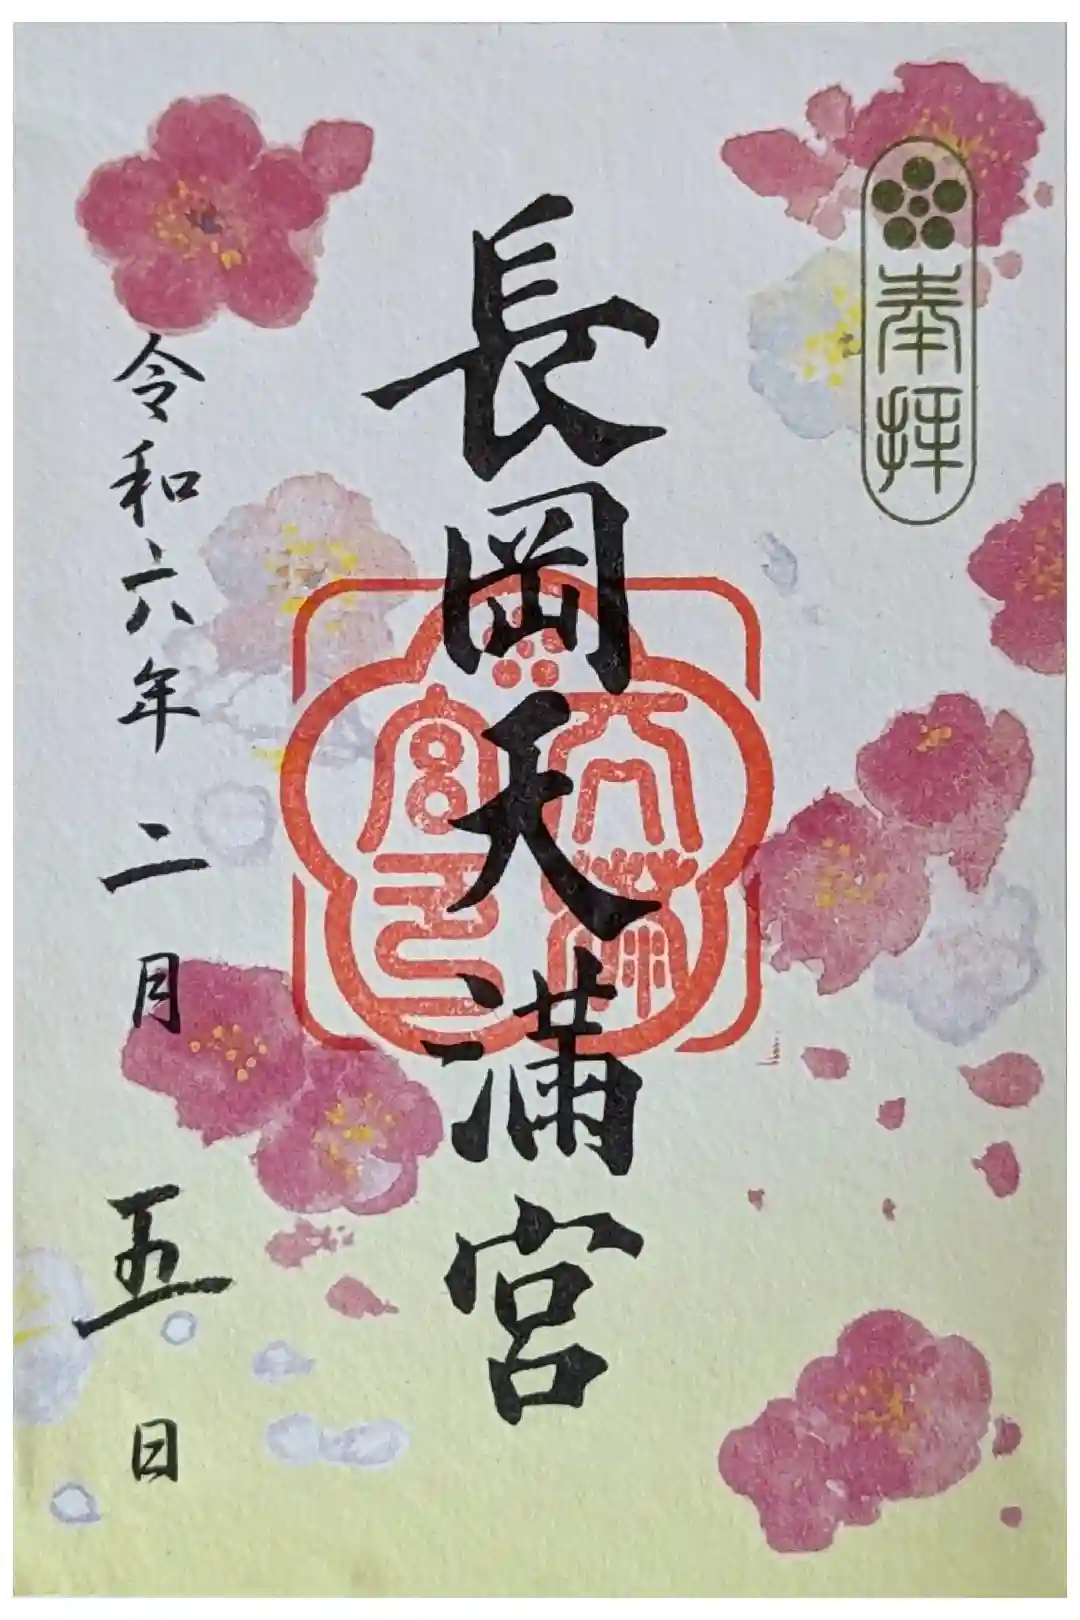 奉拝
長岡天満宮
天満宮印
令和六年二月五日